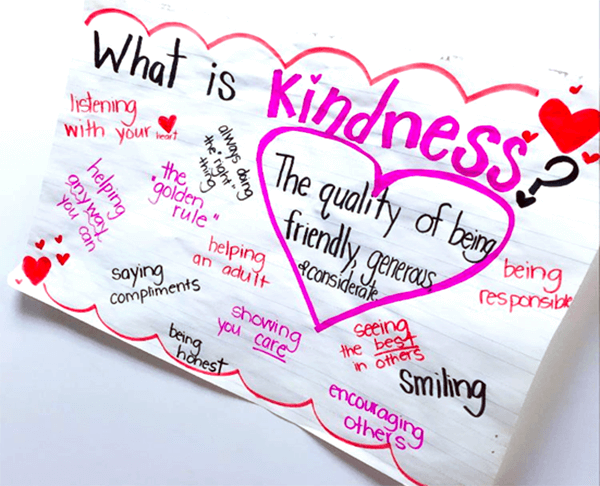 What is Kindness?
listening
with your heart
always doing
the "right"
thing
helping
anyway
you can
the
"golden
rule"
The quality of being
friendly, generous,
& considerate
helping
an adult
being
responsible
saying
compliments
showing
you care
seeing
the best
in others
being
honest
smiling
encouraging
others